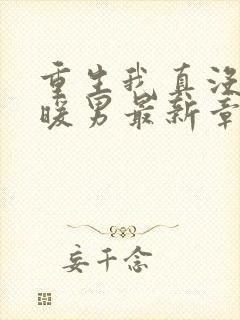 重生我真没
暖男最新章
妄千念